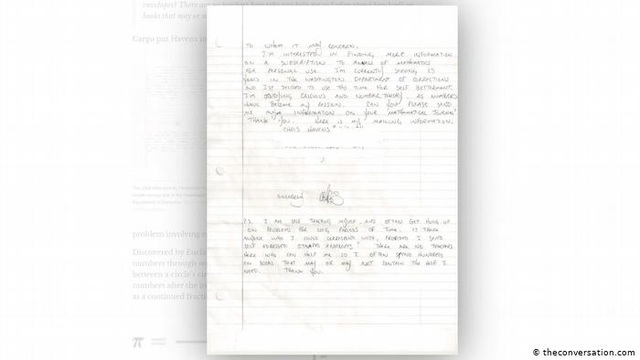 envelopes! There are no
books that may or
Cargo put Havens in
TO WHOM IT MAY CONCERN,
I'M INTERESTED IN FINDING MORE INFORMATION
ON A SUBSCRIPTION TO ANNALS OF MATHEMATICS
FOR PERSONAL USE. I'M CURRENTLY SERVING 25
YEARS IN THE WASHINGTON DEPARTMENT OF CORRECTIONS
AND I'VE DECIDED TO USE THIS TIME FOR SELF BETTERMENT.
I'M STUDYING CALCULUS AND NUMBER THEORY, AS NUMBERS
HAVE BECOME MY MISSION. CAN YOU PLEASE SEND
ME ANY INFORMATION ON YOUR MATHEMATICAL JOURNAL?
THANK YOU. HERE IS MY MAILING INFORMATION,
CHRIS HAVENS
P.S. I AM SELF TEACHING MYSELF, AND OFTEN GET HUNG UP
ON PROBLEMS FOR LONG PERIODS OF TIME. IS THERE
ANYONE WHO I COULD CORRESPOND WITH, PROVIDED I SEND
SELF ADDRESSED STAMPED ENVELOPES? THERE ARE NO TEACHERS
HERE WHO CAN HELP ME SO I OFTEN SPEND HUNDREDS
ON BOOKS THAT MAY OR MAY NOT CONTAIN THE HELP I
NEED. THANK YOU.
problem involving
Discovered by Eucli
numbers through se
between a circle's cir
numbers after the
as a continued fracti
© theconversation.com